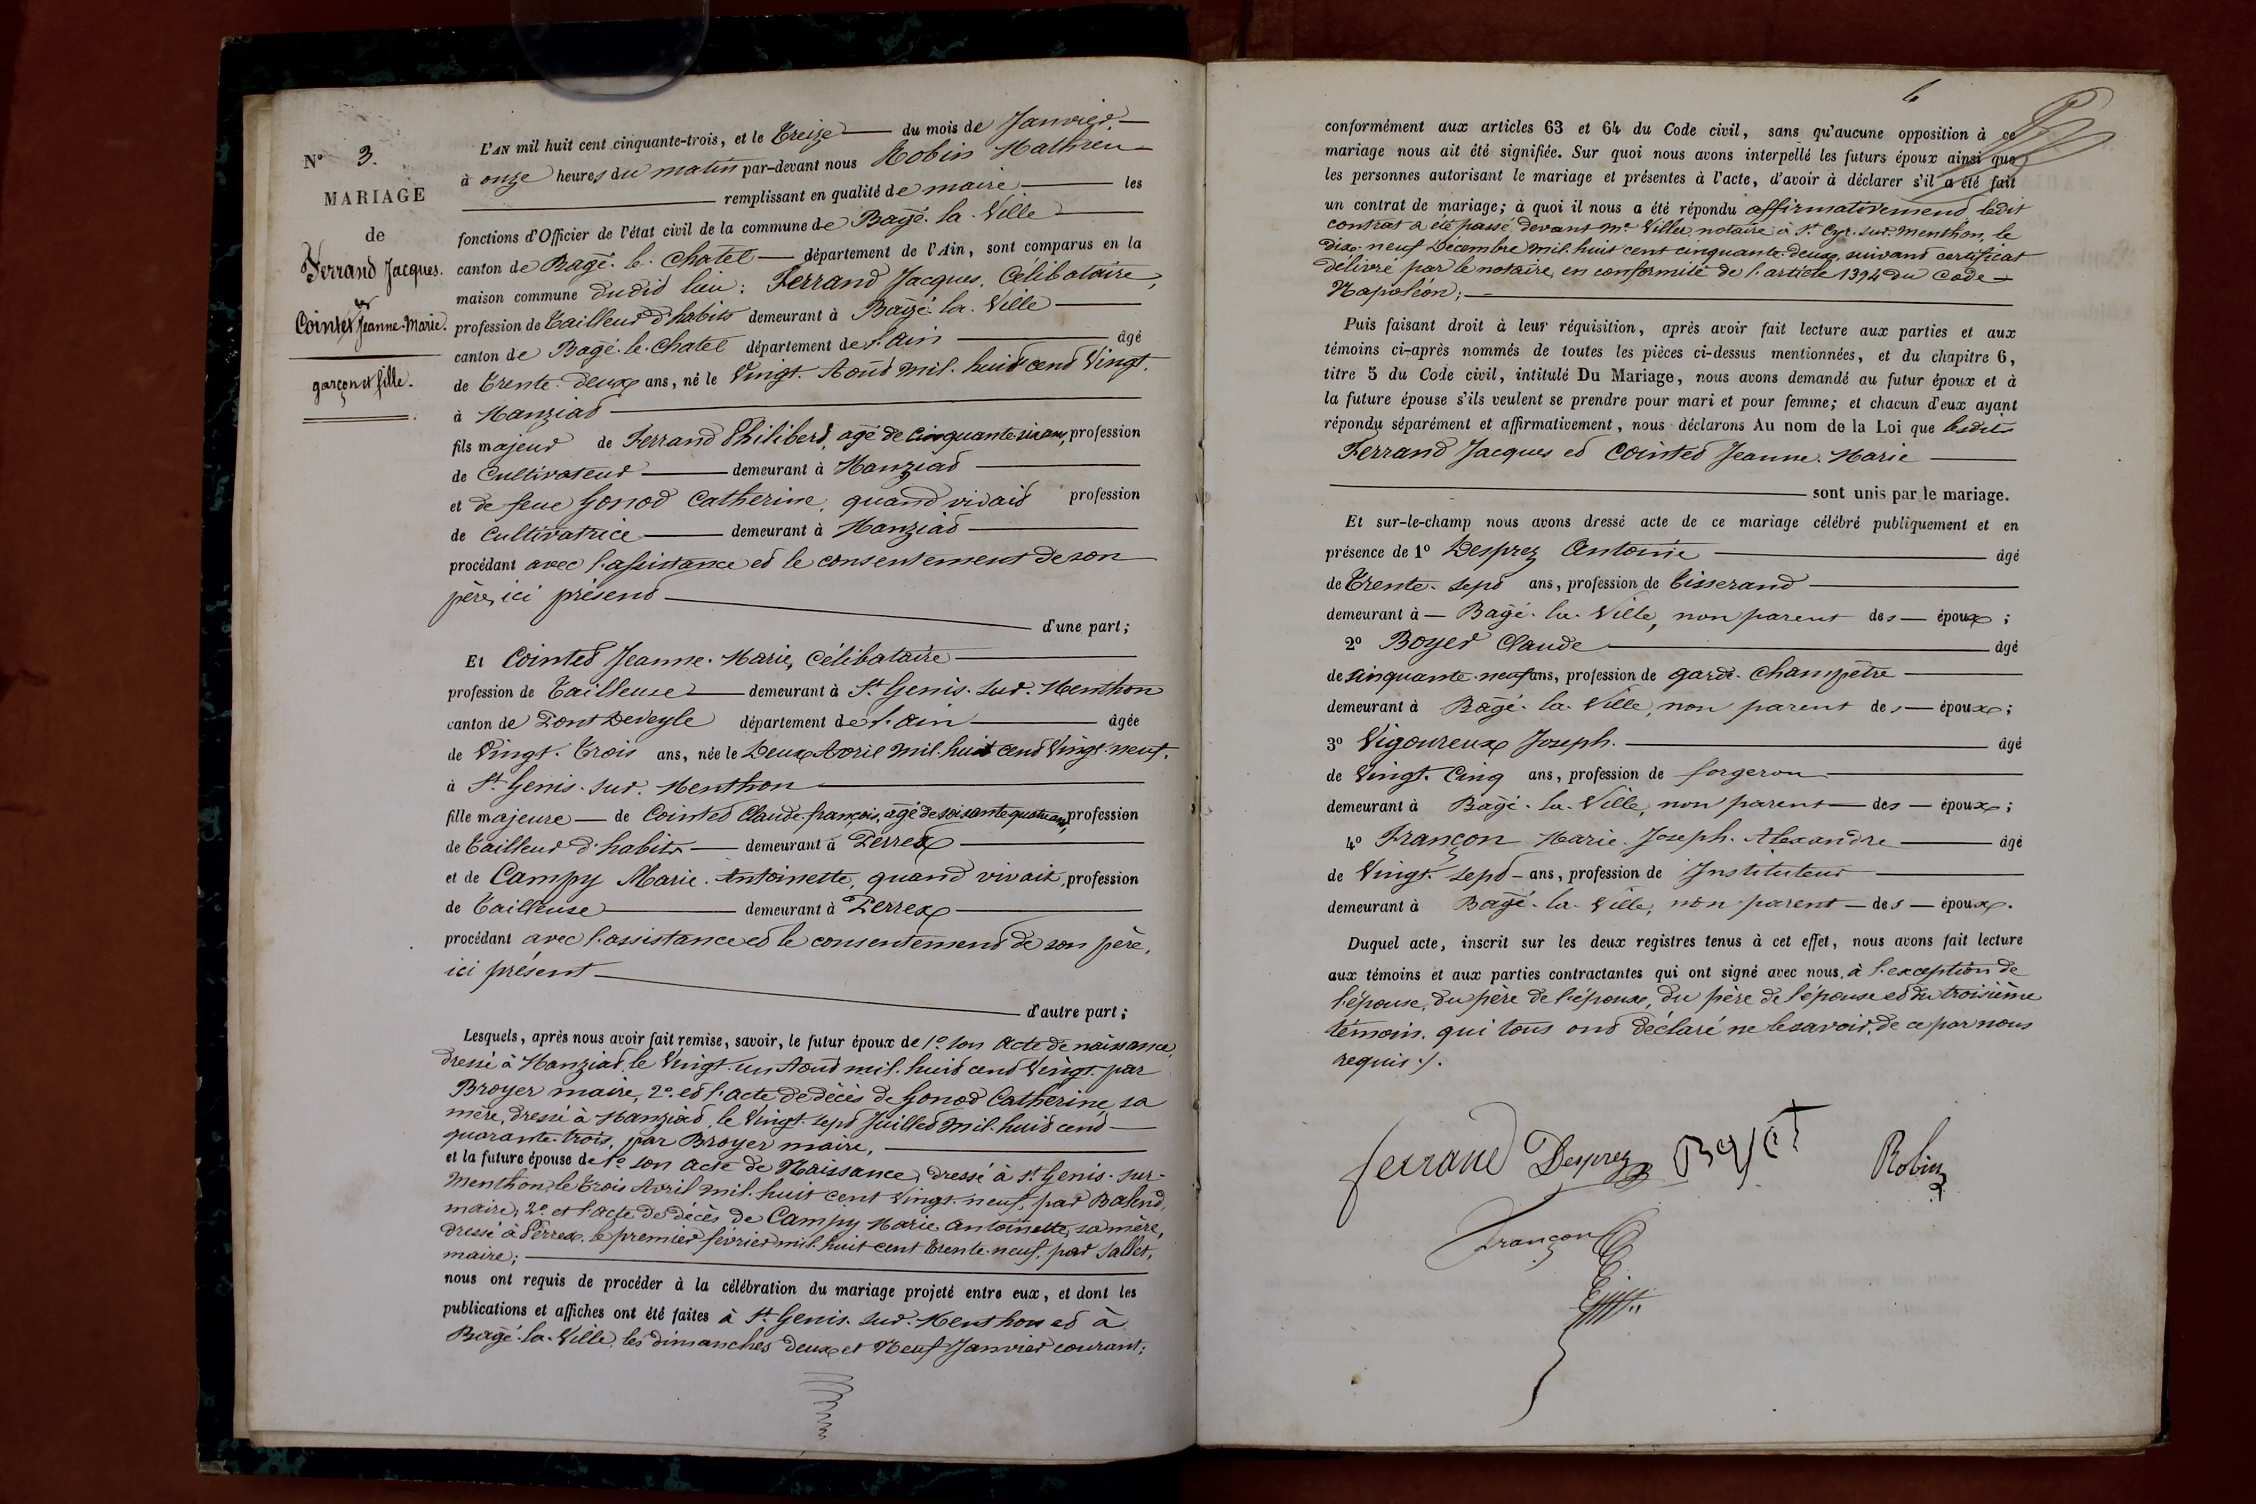 N° 3.
MARIAGE
de
Ferrand Jacques.
et
Cointet Jeanne-Marie.
garçon et fille.
L'AN mil huit cent cinquante-trois, et le Treize du mois de Janvier.
à onze heures du matin par-devant nous Robin Mathieu
remplissant en qualité de maire les
fonctions d'Officier de l'état civil de la commune de Bagé-la-Ville
canton de Bagé-le-Chatel département de l'Ain, sont comparus en la
maison commune dudit lieu: Ferrand Jacques, Célibataire,
profession de Tailleur d'habits demeurant à Bagé-la-Ville
canton de Bagé-le-Chatel département de l'Ain âgé
de Trente-deux ans, né le Vingt Août mil-huit cent Vingt.
à Manziat
fils majeur de Ferrand Philibert, agé de Cinquante six ans, profession
de Cultivateur demeurant à Manziat
et de feue Gonod Catherine, quand vivait profession
de Cultivatrice demeurant à Manziat
procédant avec l'assistance et le consentement de son
père, ici présent
d'une part;
Et Cointet Jeanne-Marie, Célibataire
profession de Tailleuse demeurant à St Genis-sur-Menthon
canton de Pont de Veyle département de l'Ain âgée
de Vingt-Trois ans, née le Deux Avril mil-huit cent Vingt-neuf.
à St Genis-sur-Menthon
fille majeure de Cointet Claude-françois, agé de soixante quatre ans, profession
de Tailleur d'habits demeurant à Perrex
et de Campy Marie-Antoinette, quand vivait, profession
de Tailleuse demeurant à Perrex
procédant avec l'assistance et le consentement de son père,
ici présent
d'autre part;
Lesquels, après nous avoir fait remise, savoir, le futur époux de 1° son acte de naissance,
dressé à Manziat, le Vingt-un Août mil-huit cent Vingt par
Broyer maire, 2° et l'acte de décès de Gonod Catherine, sa
mère, dressé à Manziat, le Vingt-sept Juillet mil-huit cent
quarante-trois, par Broyer maire,
et la future épouse de 1° son acte de Naissance, dressé à St Genis-sur-
Menthon, le Trois Avril mil-huit cent Vingt-neuf, par
maire, 2° et l'acte de décès de Campy Marie Antoinette, sa mère,
dressé à Perrex, le premier février mil-huit cent trente-neuf, par Sallet,
maire;
nous ont requis de procéder à la célébration du mariage projeté entre eux, et dont les
publications et affiches ont été faites à St Genis-sur-Menthon et à
Bagé-la-Ville, les dimanches deux et Neuf Janvier courant;
conformément aux articles 63 et 64 du Code civil, sans qu'aucune opposition à ce
mariage nous ait été signifiée. Sur quoi nous avons interpellé les futurs époux ainsi que
les personnes autorisant le mariage et présentes à l'acte, d'avoir à déclarer s'il a été fait
un contrat de mariage; à quoi il nous a été répondu affirmativement, ledit
contrat a été passé devant Me Villet, notaire à St Cyr-sur-Menthon, le
dix-neuf Décembre mil-huit cent cinquante-deux, suivant certificat
délivré par le notaire, en conformité de l'article 1394 du Code
Napoléon;
Puis faisant droit à leur réquisition, après avoir fait lecture aux parties et aux
témoins ci-après nommés de toutes les pièces ci-dessus mentionnées, et du chapitre 6,
titre 5 du Code civil, intitulé Du Mariage, nous avons demandé au futur époux et à
la future épouse s'ils veulent se prendre pour mari et pour femme; et chacun d'eux ayant
répondu séparément et affirmativement, nous déclarons Au nom de la Loi que lesdits
Ferrand Jacques et Cointet Jeanne-Marie
sont unis par le mariage.
Et sur-le-champ nous avons dressé acte de ce mariage célébré publiquement et en
présence de 1° Desprez Antoine âgé
de Trente-sept ans, profession de Tisserand
demeurant à Bagé-la-Ville, non parent des époux;
2° Boyer Claude âgé
de cinquante-neuf ans, profession de garde-champêtre
demeurant à Bagé-la-Ville, non parent des époux;
3° Vigoureux Joseph. âgé
de Vingt-Cinq ans, profession de forgeron
demeurant à Bagé-la-Ville, non parent des époux;
4° Françon Marie-Joseph-Alexandre âgé
de Vingt-sept ans, profession de Instituteur
demeurant à Bagé-la-Ville, non parent des époux.
Duquel acte, inscrit sur les deux registres tenus à cet effet, nous avons fait lecture
aux témoins et aux parties contractantes qui ont signé avec nous, à l'exception de
l'épouse, du père de l'époux, du père de l'épouse et du troisième
témoin, qui tous ont déclaré ne le savoir, de ce par nous
requis./.
ferrand Desprez Boyer Robin
Françon